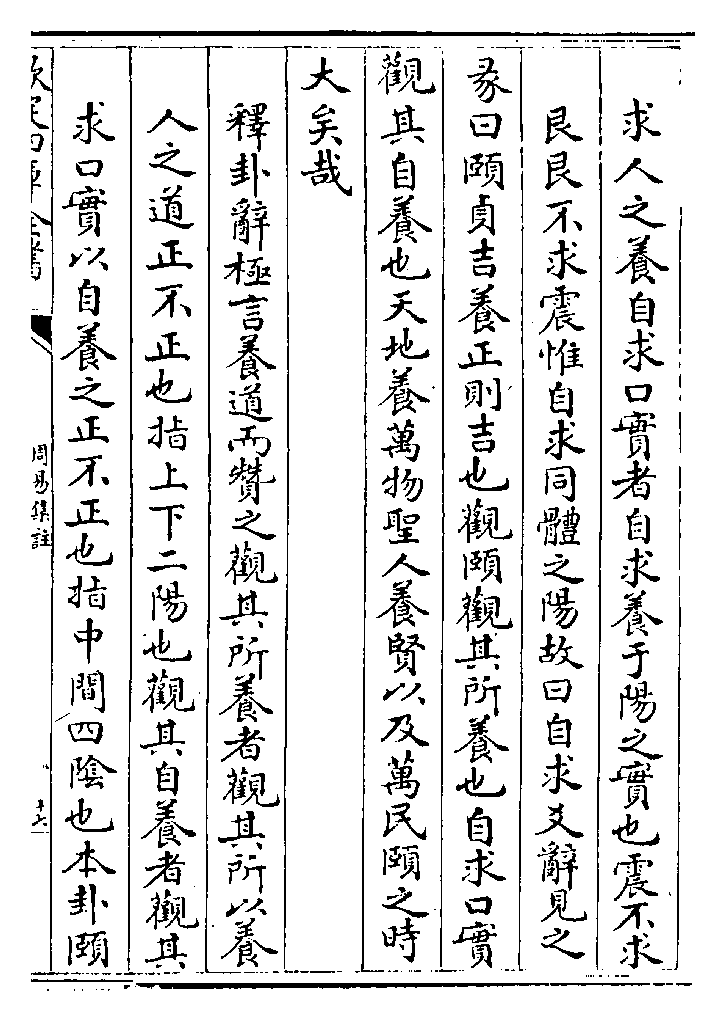 求人之養自求口實者自求養于陽之實也震不求
艮艮不求震惟自求同體之陽故曰自求爻辭見之
彖曰頤貞吉養正則吉也觀頤觀其所養也自求口實
觀其自養也天地養萬物聖人養賢以及萬民頤之時
大矣哉
釋卦辭極言養道而贊之觀其所養者觀其所以養
人之道正不正也指上下二陽也觀其自養者觀其
求口實以自養之正不正也指中間四陰也本卦頤
欽定四庫全書
周易集註